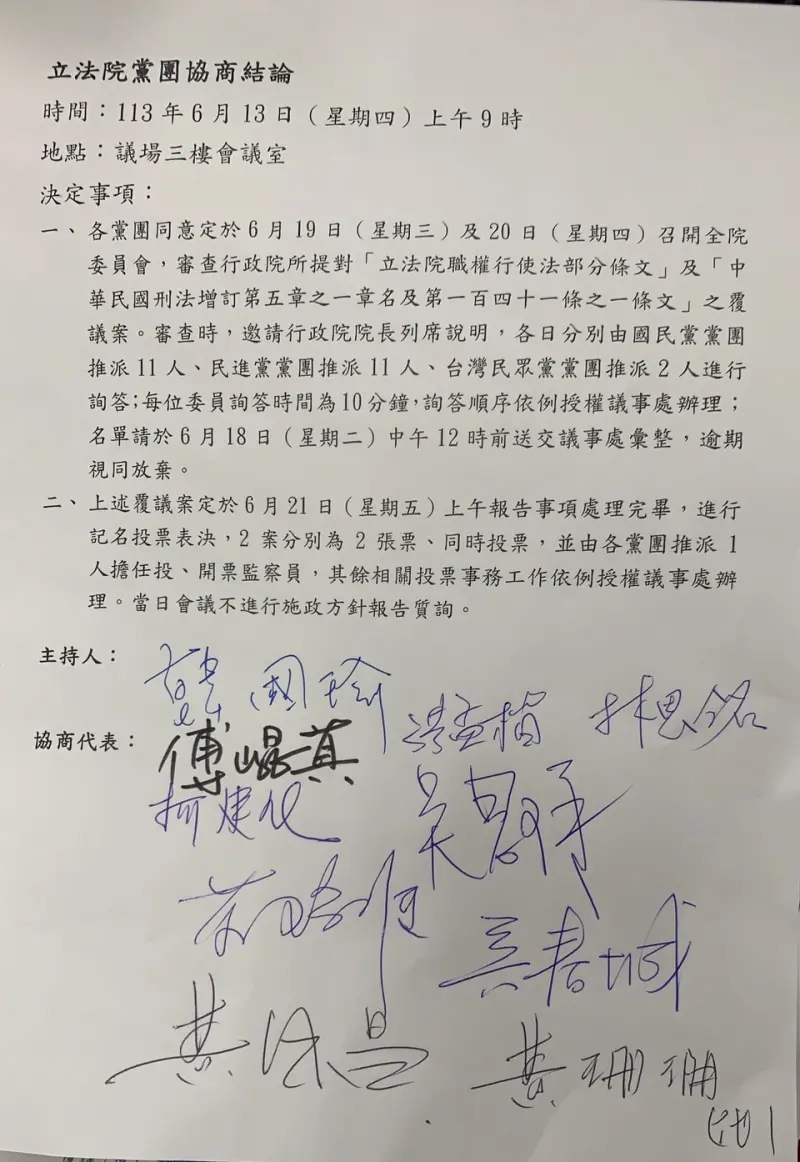 立法院黨團協商結論
時間：113年6月13日（星期四）上午9時
地點：議場三樓會議室
決定事項：
一、各黨團同意定於6月19日（星期三）及20日（星期四）召開全院
委員會，審查行政院所提對「立法院職權行使法部分條文」及「中
華民國刑法增訂第五章之一章名及第一百四十一條之一條文」之覆
議案。審查時，邀請行政院院長列席說明，各日分別由國民黨黨團
推派11人、民進黨黨團推派11人、台灣民眾黨黨團推派2人進行
詢答；每位委員詢答時間為10分鐘，詢答順序依例授權議事處辦理；
名單請於6月18日（星期二）中午12時前送交議事處彙整，逾期
視同放棄。
二、上述覆議案定於6月21日（星期五）上午報告事項處理完畢，進行
記名投票表決，2案分別為2張票、同時投票，並由各黨團推派1
人擔任投、開票監察員，其餘相關投票事務工作依例授權議事處辦
理。當日會議不進行施政方針報告質詢。
主持人：
韓國瑜
協商代表：
傅崐萁 洪孟楷 林思銘
柯建銘
吳思瑤
吳春城
黃國昌
黃珊珊